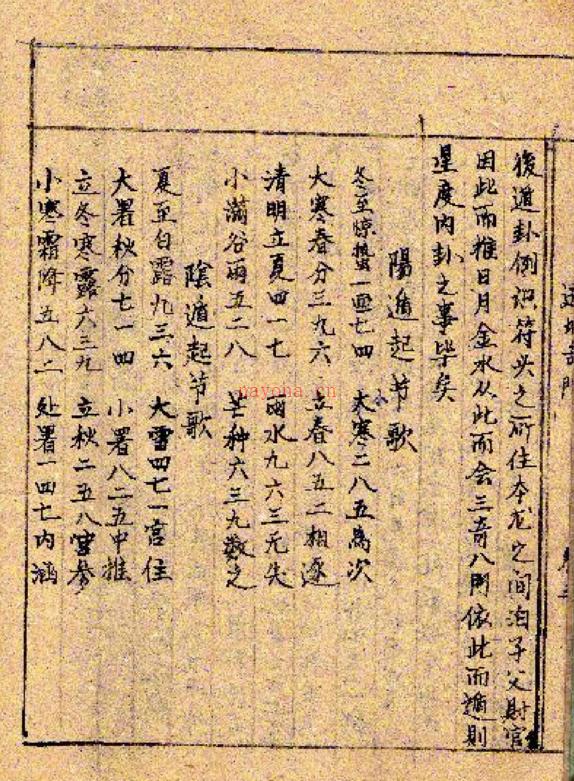 後遁卦例识符头之所住本龙之间泊子父財官
因此而推日月金水从此而会三奇八門依此而遁則
星度内卦之事毕矣
陽遁起节歌
冬至惊蛰一七四 小寒二八五為次
大寒春分三九六 立春八五二相逐
清明立夏四一七 雨水九六三无失
小滿谷雨五二八 芒种六三九数之
陰遁起节歌
夏至白露九三六 大雪四七一宫住
大署秋分七一四 小署八二五中推
立冬寒露六三九 立秋二五八宫参
小寒霜降五八二 处署一四七内涵
nayona.cn